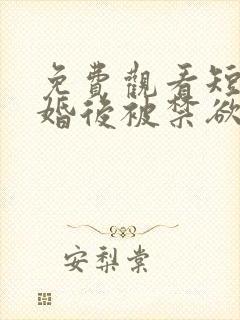 免費觀看短
婚後被禁欲
安梨棠